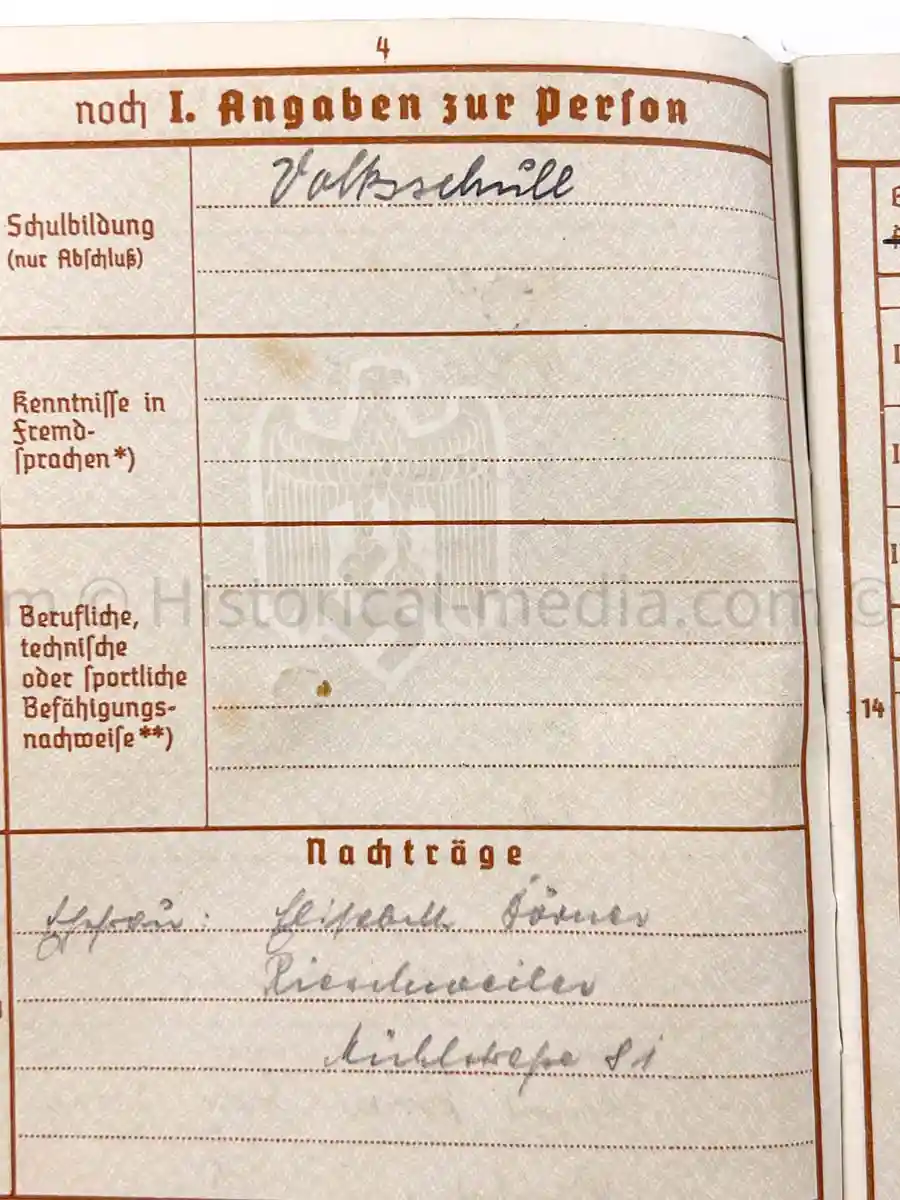 4
noch I. Angaben zur Person
Schulbildung
(nur Abschluß)
Volksschule
Kenntnisse in
Fremd-
sprachen*)
Berufliche,
technische
oder sportliche
Befähigungs-
nachweise**)
© Historical-media.com ©
14
Nachträge
Ehefrau: Elisabeth Körner
Rieschweiler
Mühlstraße 81